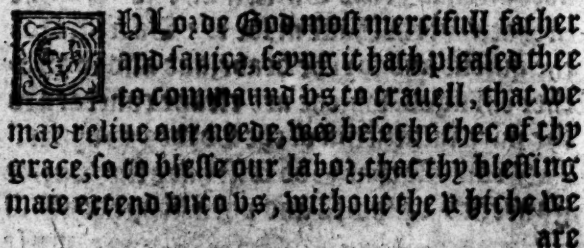 Oh Lorde God most mercifull father
and sauior, seyng it hath pleased thee
to commaund vs to trauell, that we
may reliue our neede, wée beseche thee of thy
grace, so to blesse our labor, that thy blessing
maie extend vnto vs, without the whiche we
are